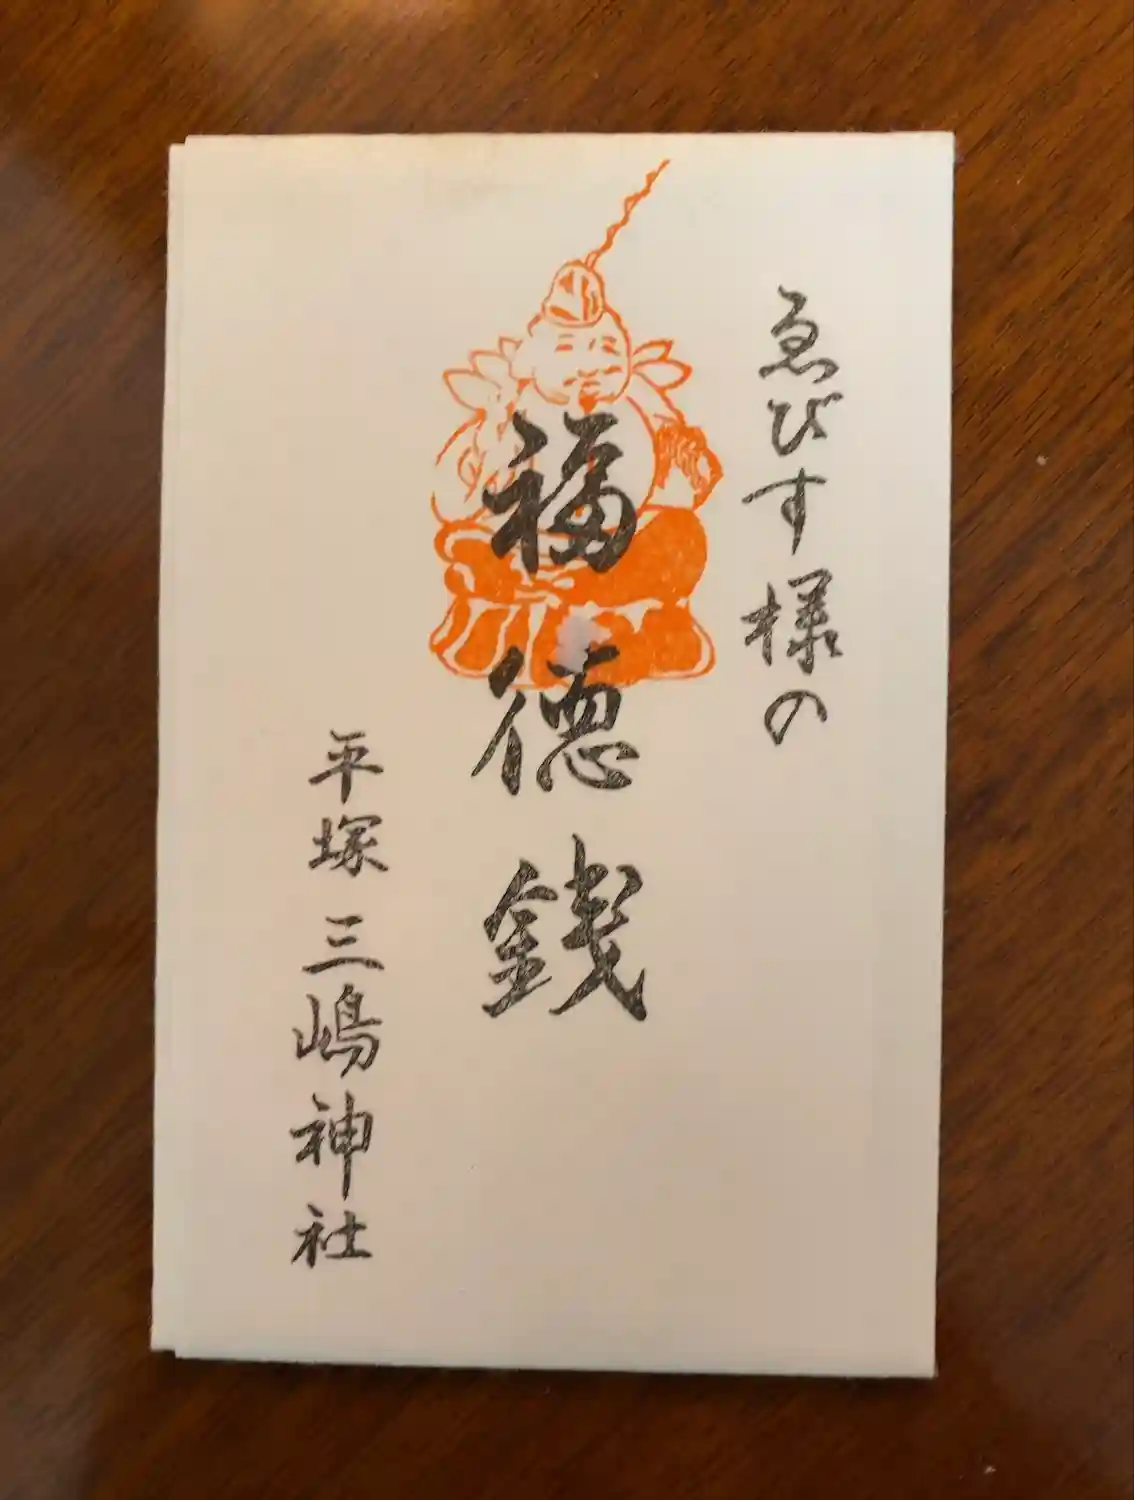 ゑびす様の
福徳銭
平塚 三嶋神社